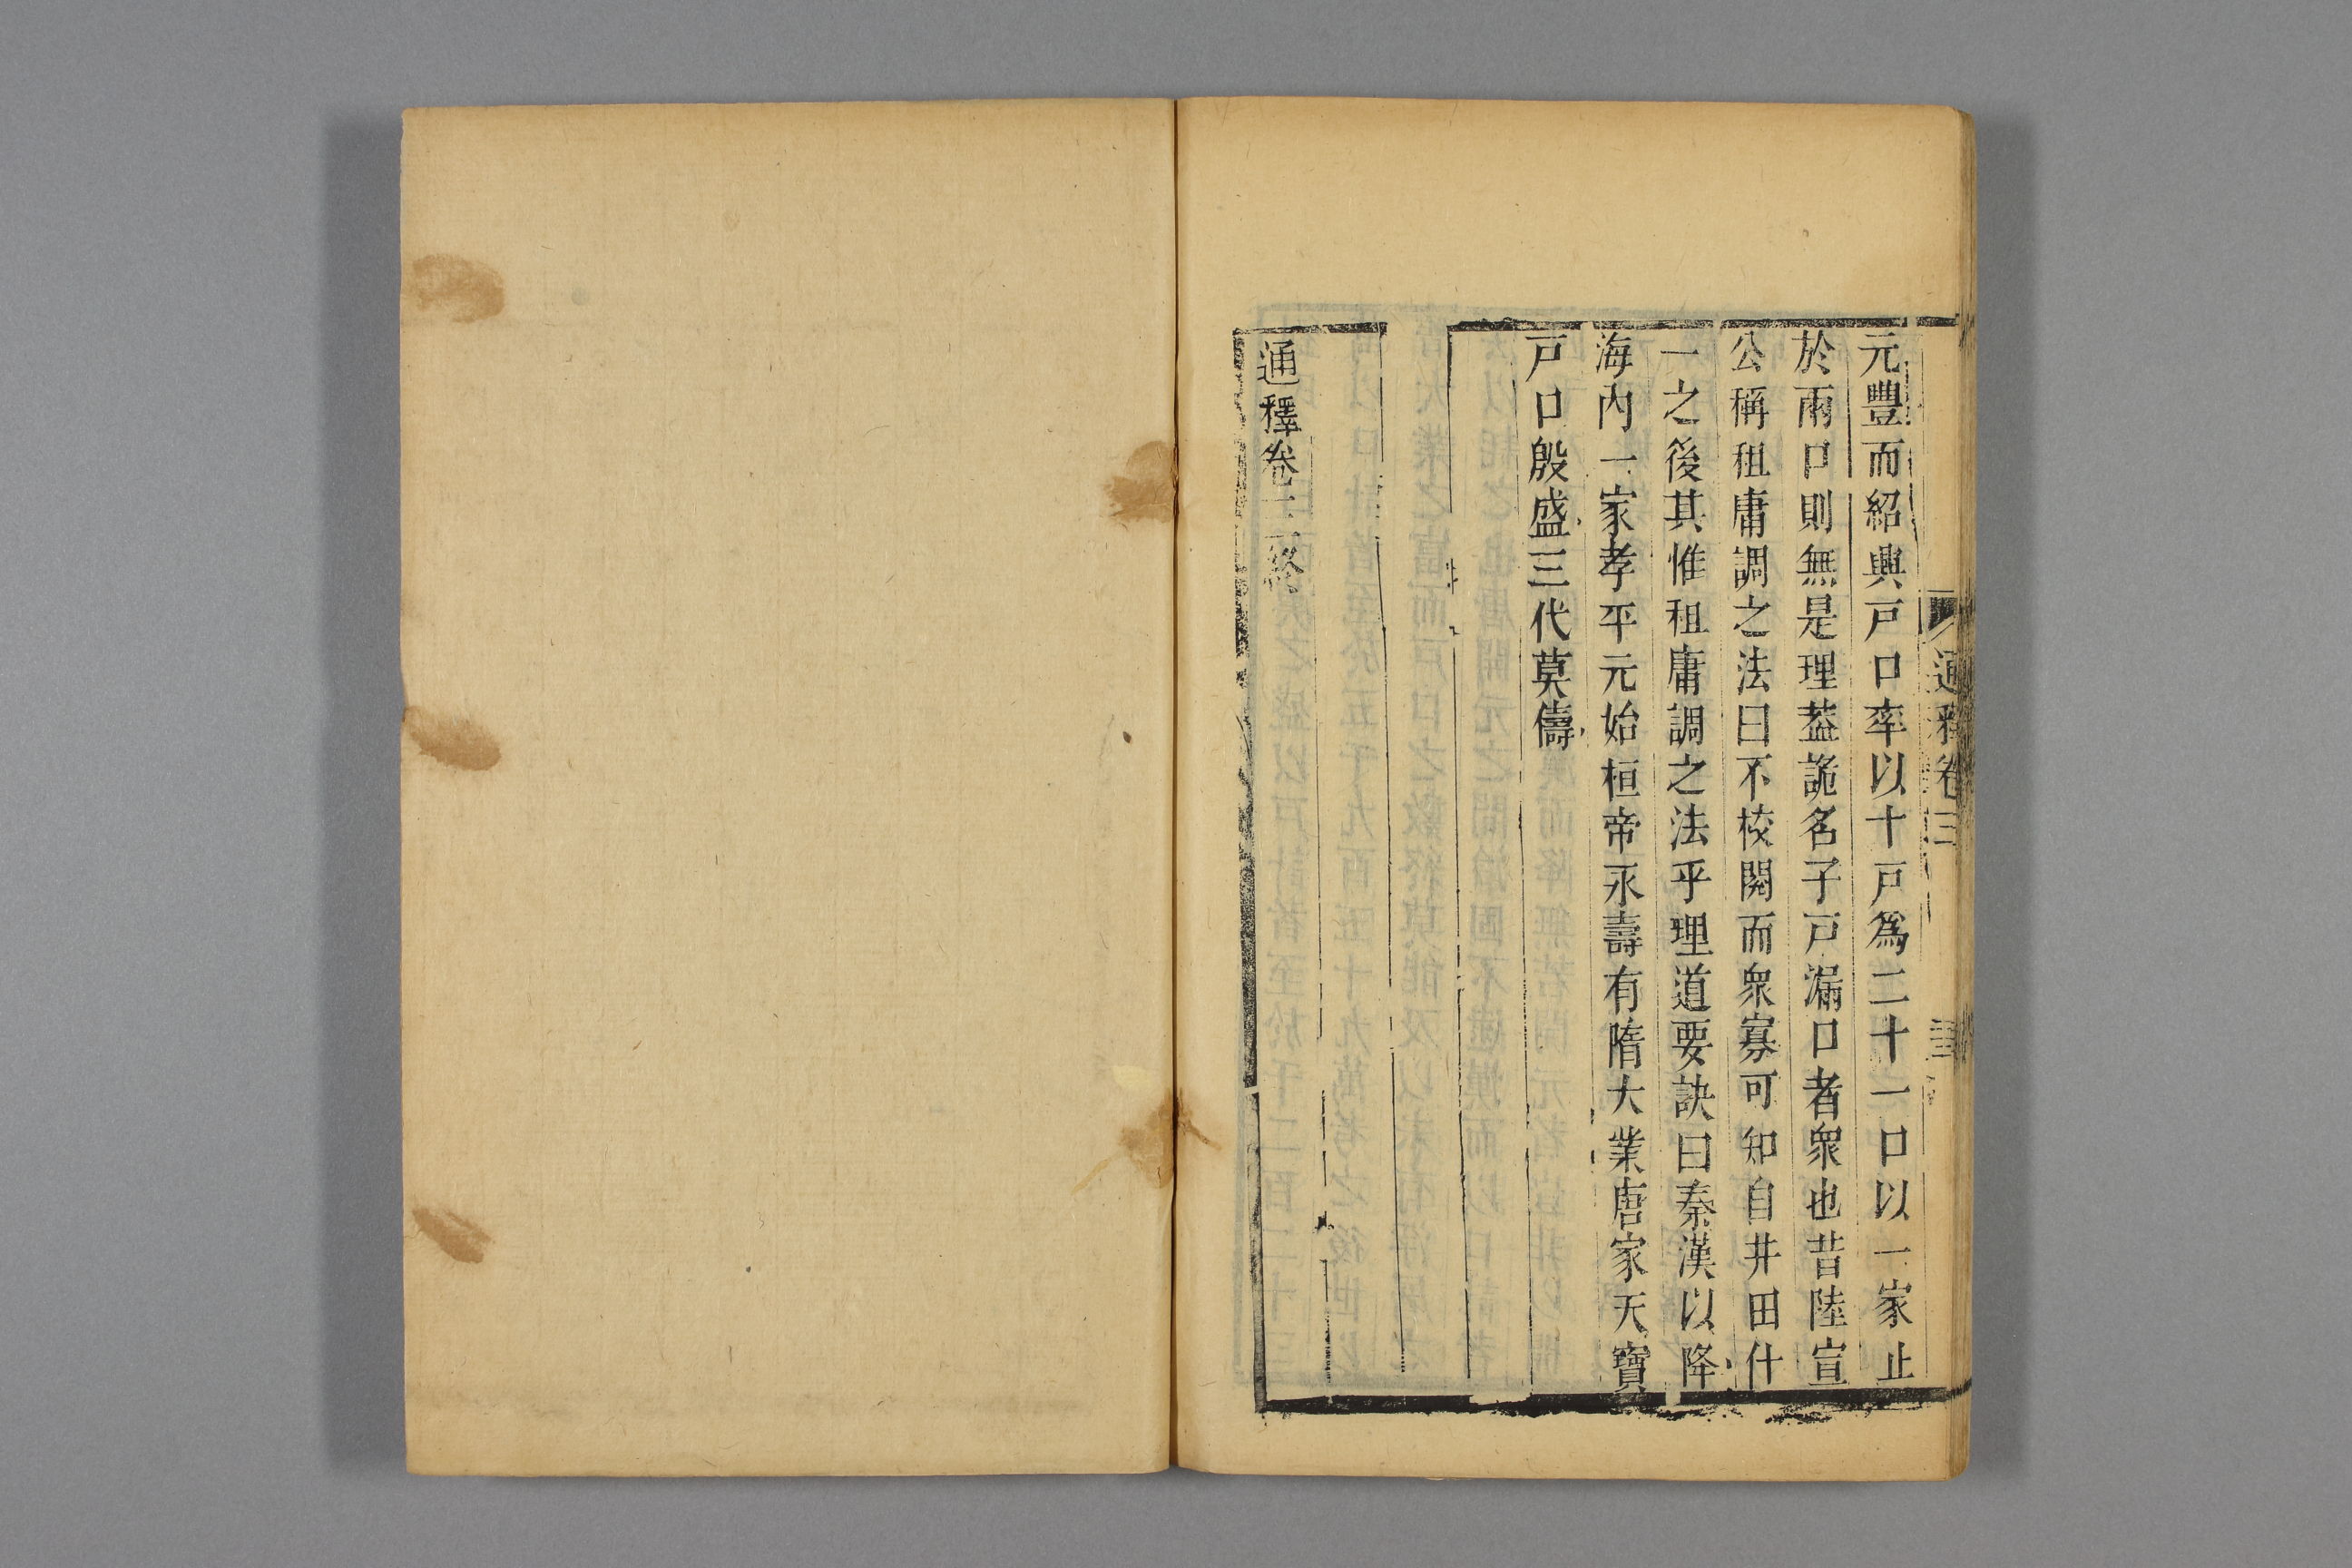 元豐而紹興戸口率以十戸爲二十一口以一家止
於兩口則無是理葢詭名子戸漏口者衆也昔陸宣
公稱租庸調之法曰不校閱而衆寡可知自井田什
一之後其惟租庸調之法乎理道要訣曰秦漢以降
海内一家孝平元始桓帝永壽有隋大業唐家天寶
戸口殷盛三代莫儔
通釋卷三終
通釋卷三